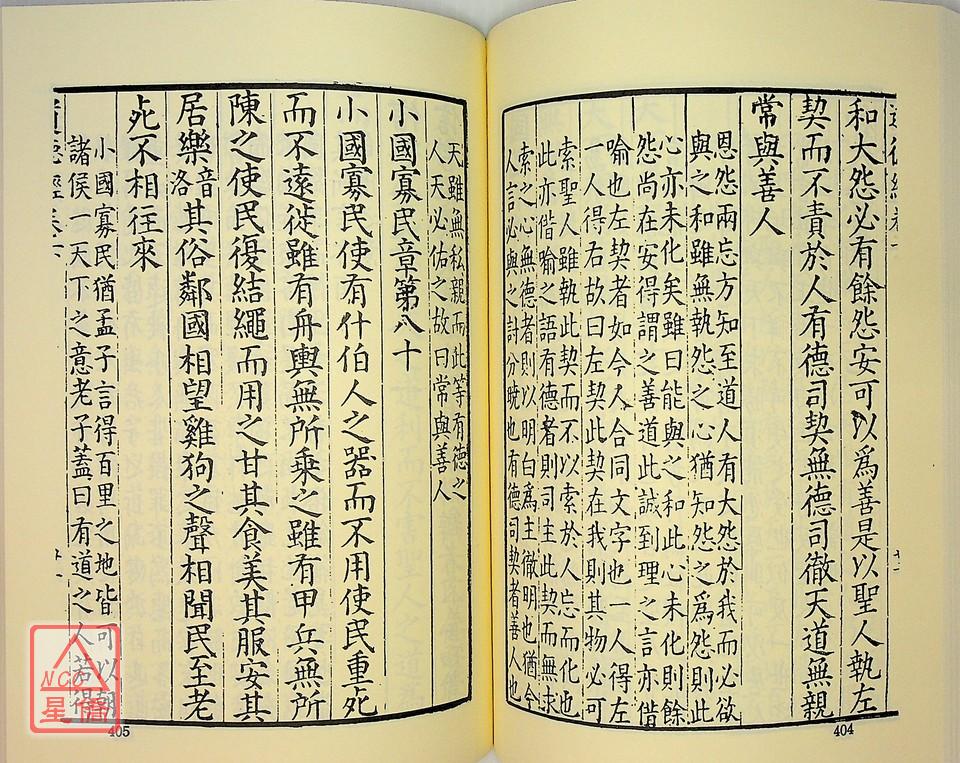 和大怨必有餘怨安可以爲善是以聖人執左
契而不責於人有德司契無德司徹天道無親
常與善人
恩怨兩忘方知至道人有大怨於我而必欲
與之和雖無執怨之心猶知怨之爲怨則此
心亦未化矣雖曰能與之和此心未化則餘
怨尚在安得謂之善道此誠到理之言亦借
喻也左契者如今人合同文字也一人得左
一人得右故曰左契此契在我則其物必可
索聖人雖執此契而不以索於人忘而化也
此亦借喻之語有德者則司主此契而無求
索之心無德者則以明白爲主徹明也猶今
人言必與之討分曉也有德司契者善人也
404
天雖無私親而此等有德之
人天必佑之故曰常與善人
小國寡民章第八十
小國寡民使有什伯人之器而不用使民重死
而不遠徙雖有舟輿無所乗之雖有甲兵無所
陳之使民復結繩而用之甘其食美其服安其
居樂音洛其俗鄰國相望雞狗之聲相聞民至老
死不相往來
小國寡民猶孟子言得百里之地皆可以朝
諸侯一天下之意老子蓋曰有道之人若得
道德經卷下
405
NCC
星僑